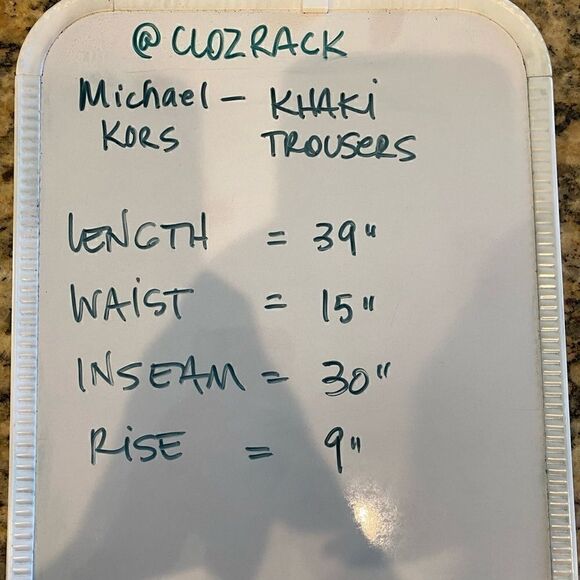 @CLOZRACK
Michael - KHAKi
KORS TROUSERS
LENGTH = 39"
WAiST = 15"
INSEAM = 30"
RiSE = 9"